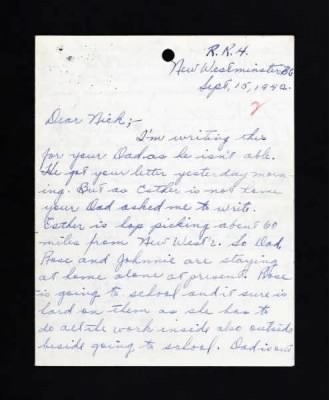 R.R.4.
New Westminster BC
Sept, 15, 1942.
2
Dear Nick;-
I'm writing this
for your Dad. as he isn't able.
He got your letter yesterday morn-
ing. But as Esther is not home
your Dad asked me to write.
Esther is hop picking about 60
miles from New West'r. So Dad,
Rose and Johnnie are staying
at home alone at present. Rose
is going to school and it sure is
hard on them as she has to
do all the work inside also outside
beside going to school. Dad is out